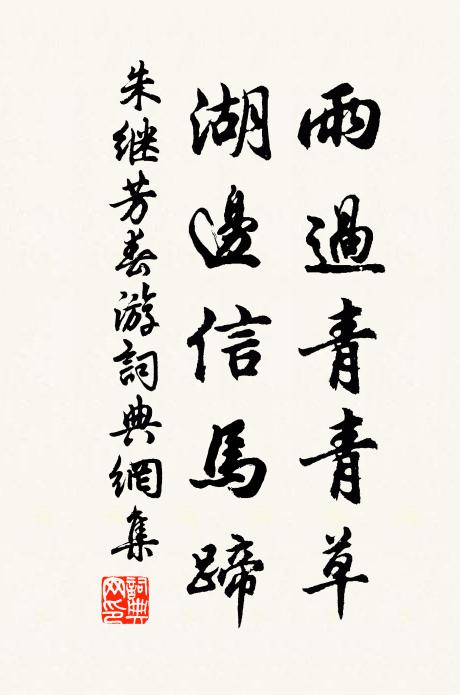 雨過青青草
湖邊信馬蹄
朱继芳春游詞典網集
詞典網印